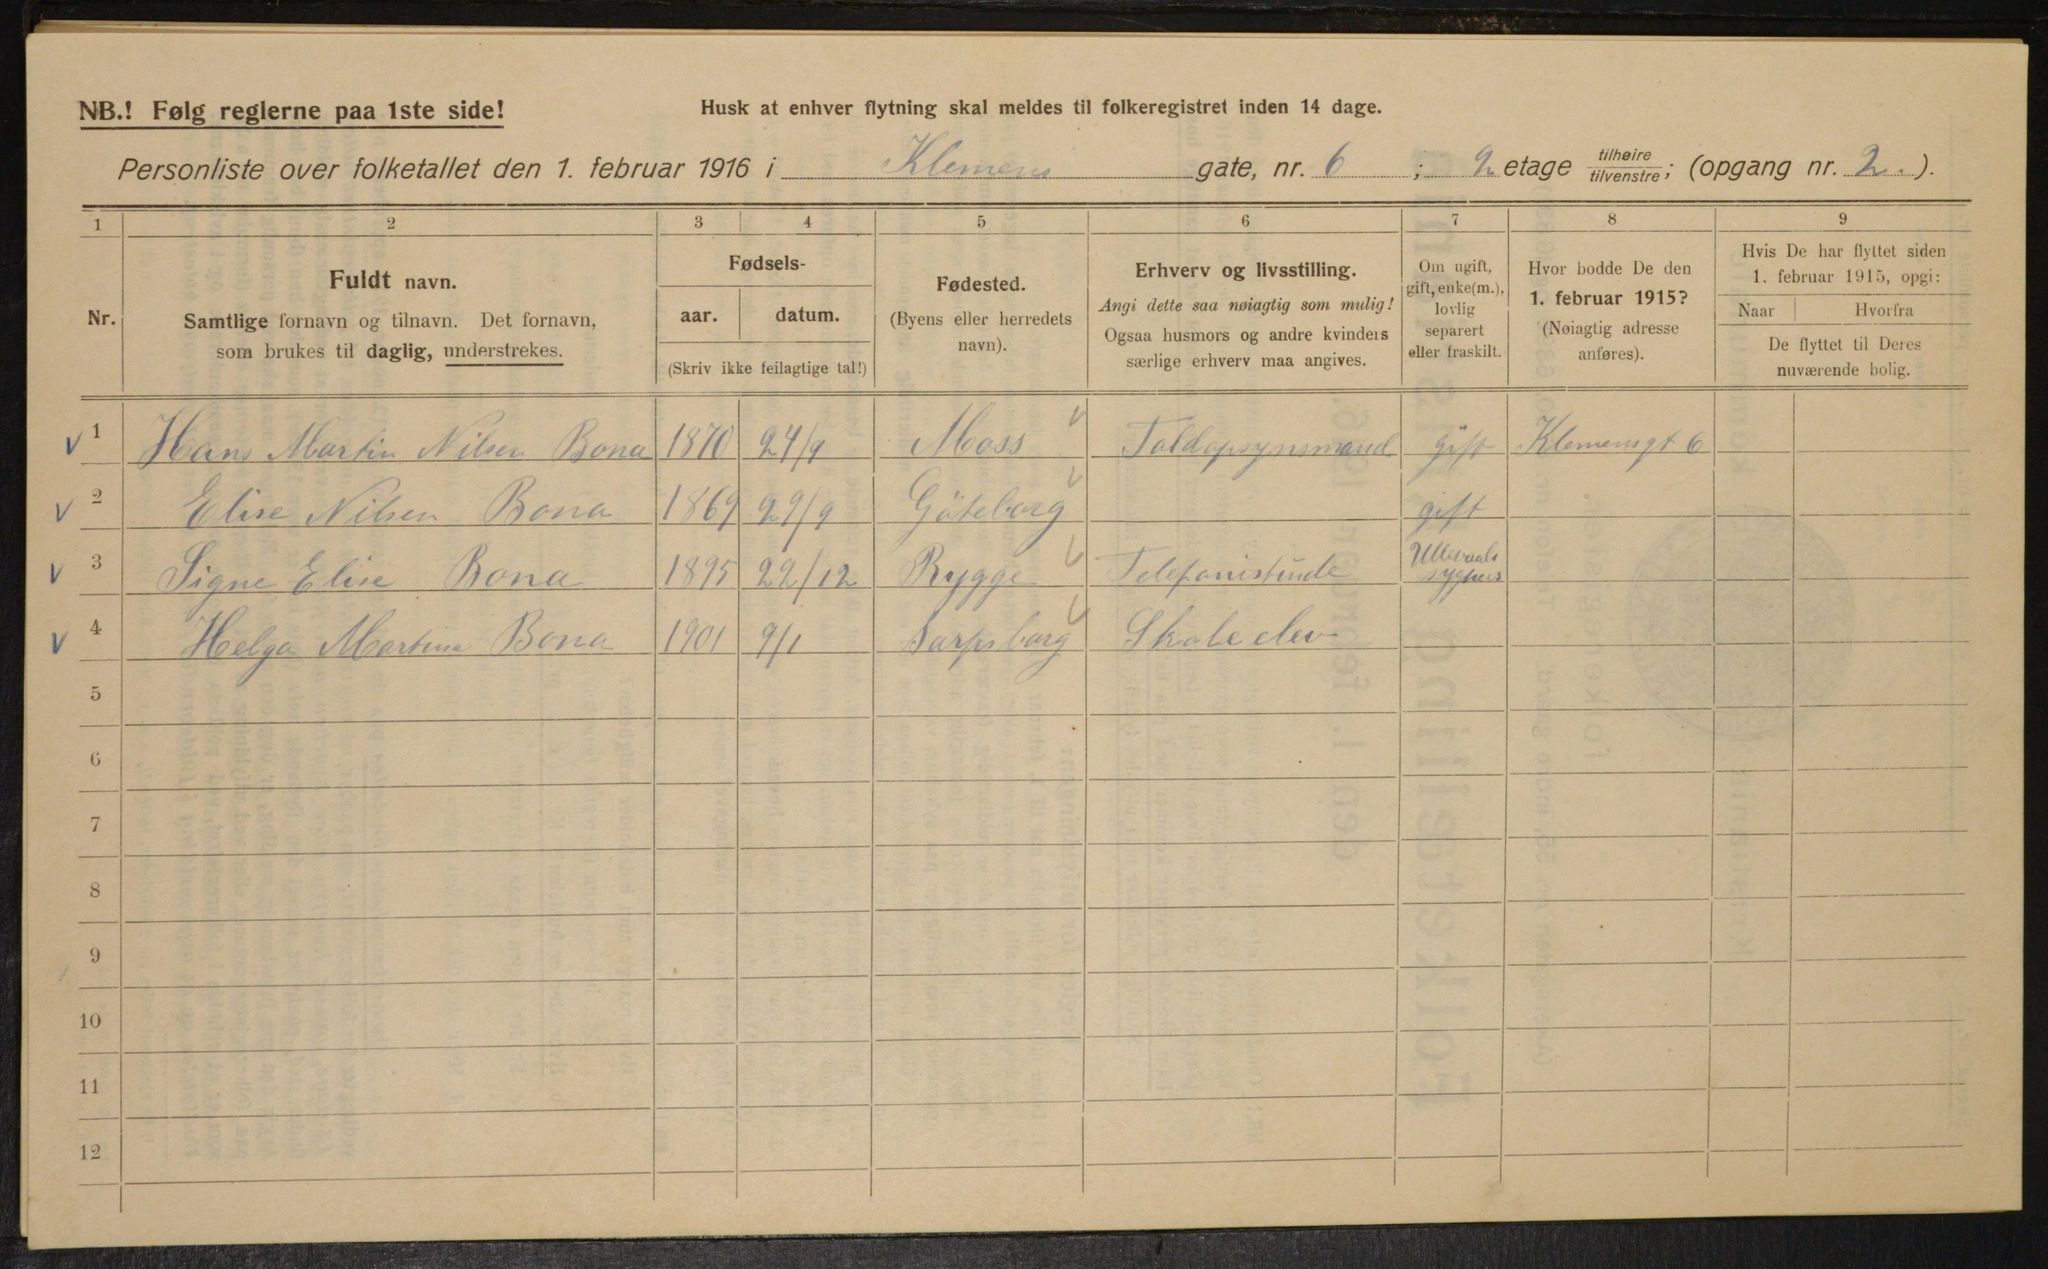 NB.! Følg reglerne paa 1ste side!
Husk at enhver flytning skal meldes til folkeregistret inden 14 dage.
Personliste over folketallet den 1. februar 1916 i Klemens gate, nr. 6 ; 2 etage tilhøire tilvenstre; (opgang nr. 2. ).
1 2 3 4 5 6 7 8 9
Nr.
Fuldt navn.
Samtlige fornavn og tilnavn. Det fornavn,
som brukes til daglig, understrekes.
Fødsels-
aar. datum.
(Skriv ikke feilagtige tal!)
Fødested.
(Byens eller herredets
navn).
Erhverv og livsstilling.
Angi dette saa nøiagtig som mulig!
Ogsaa husmors og andre kvinders
særlige erhverv maa angives.
Om ugift,
gift, enke(m.),
lovlig
separert
eller fraskilt.
Hvor bodde De den
1. februar 1915?
(Nøiagtig adresse
anføres).
Hvis De har flyttet siden
1. februar 1915, opgi:
Naar Hvorfra
De flyttet til Deres
nuværende bolig.
1 Hans Martin Nilsen Bona 1870 24/9 Moss Toldopsynsmand gift Klemensgt 6
2 Elise Nilsen Bona 1869 29/9 Göteborg gift
3 Signe Elise Bona 1895 22/12 Rygge Telefonistinde Ullevaals
sygehus
4 Helga Martina Bona 1901 9/1 Sarpsborg Skoleelev
5
6
7
8
9
10
11
12